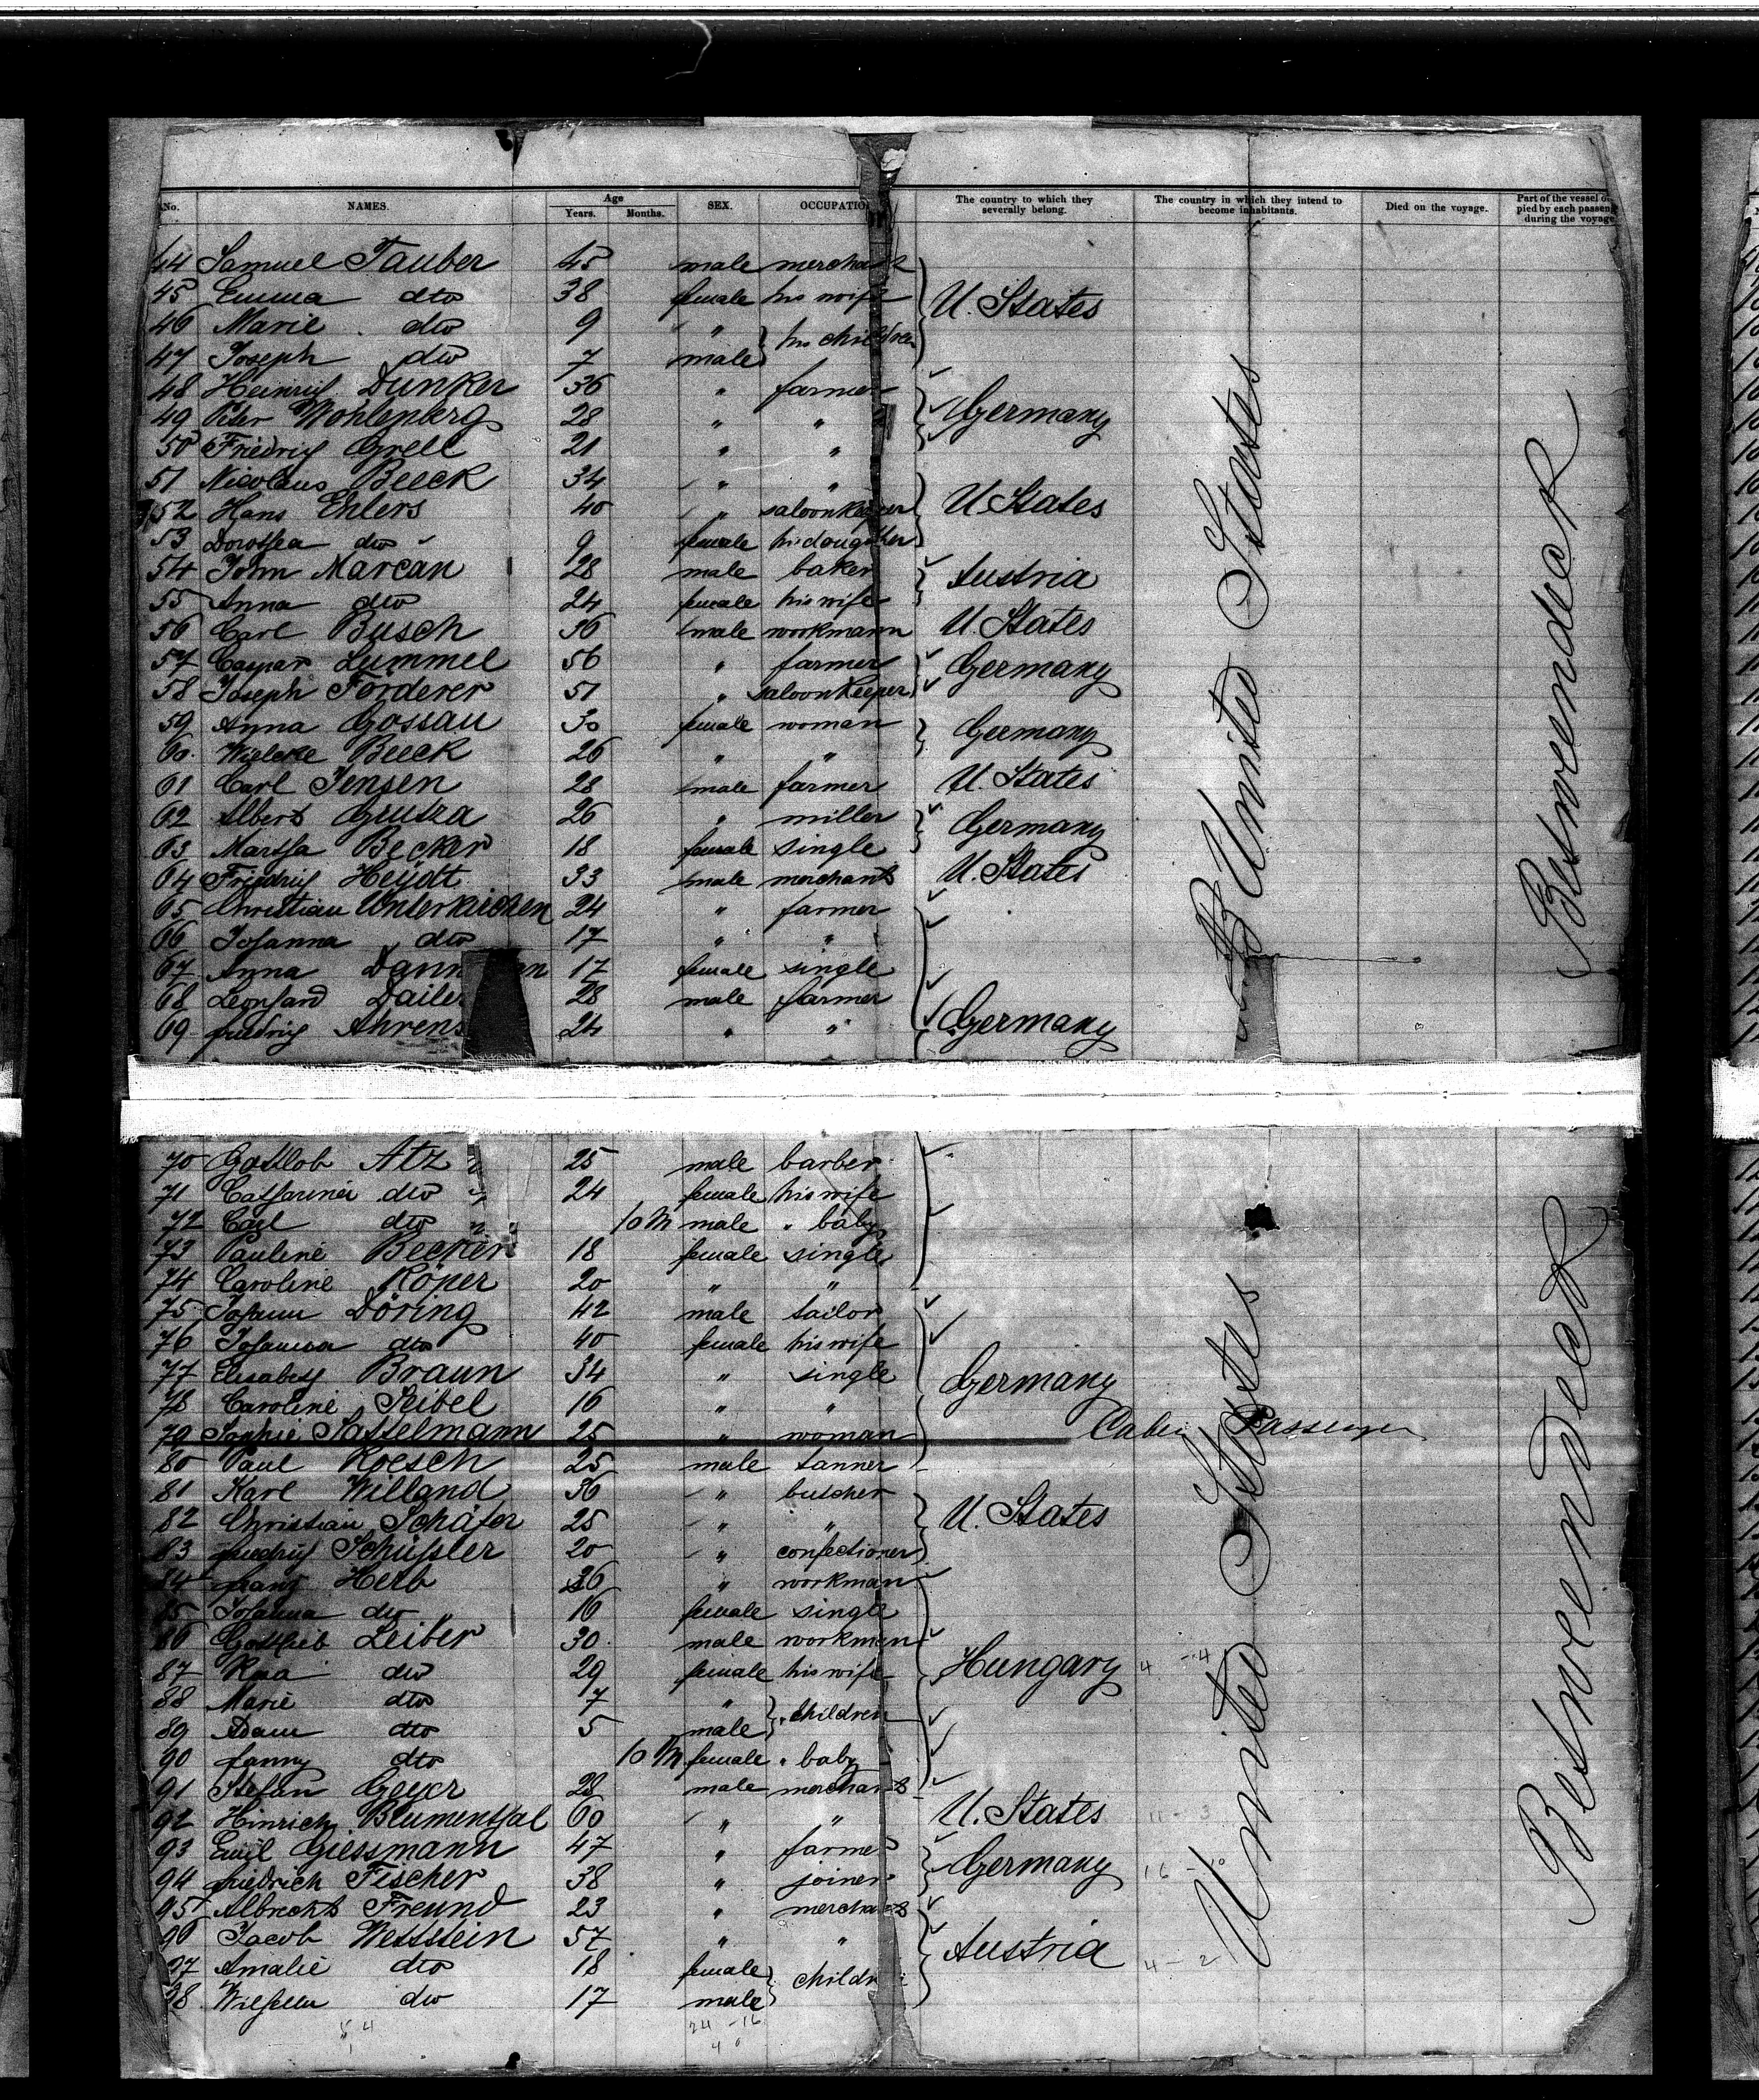 No. NAMES. Age Years. Months. SEX. OCCUPATIO The country to which they severally belong. The country in which they intend to become inhabitants. Died on the voyage. Part of the vessel o pied by each passen during the voyage
44 Samuel Tauber 45 male merchant
45 Emma dto 38 female his wife U. States
46 Marie dto 9 " his children
47 Joseph dto 7 male
48 Heinrich Dunker 36 " farmer
49 Peter Wohlenberg 28 " " Germany
50 Friedrich Grell 21 " "
51 Nicolaus Beeck 34 " "
52 Hans Ehlers 40 " saloonkeeper U States
53 Dorothea dto 9 female his doughther
54 John Marcan 28 male baker Austria
55 Anna dto 24 female his wife
56 Carl Busch 36 male workmann U. States
57 Caspar Lummel 56 " farmer Germany
58 Joseph Förderer 51 " saloonkeeper
59 Anna Gossau 30 female woman Germany
60 Beeck 26 " "
61 Carl Jensen 28 male farmer U. States
62 Albert Grutza 26 " miller Germany
63 Martha Becker 18 female single
64 Friedrich Heydt 33 male merchant U. States
65 Christian Unterkirchen 24 " farmer
66 Johanna dto 17 " "
67 Anna Dann en 17 female single
68 Leonhard Dailer 28 male farmer
69 friedrich Ahrens 24 " " Germany
United States
Betweendeck
70 Gottlob Atz 25 male barber
71 Catharina dto 24 female his wife
72 Carl dto 10 M male " baby
73 Pauline Becker 18 female single
74 Caroline Röper 20 " "
75 Johann Döring 42 male tailor
76 Johanna dto 40 female his wife
77 Elisabeth Braun 34 " single Germany
78 Caroline Seibel 16 " "
79 Sophie Sasselmann 25 " woman Cabin Passenger
80 Paul Roesch 25 male tanner
81 Karl Willand 36 " butcher
82 Christian Schäfer 25 " " U. States
83 friedrich Schüssler 20 " confectioner
84 franz Herb 26 " workman
85 Johanna dto 16 female single
86 Gottlieb Leiber 30 male workman
87 dto 29 female his wife Hungary 4 - 4
88 Marie dto 7 " " children
89 Adam dto 5 male
90 fanny dto 10 M female " baby
91 Stefan Geyer 28 male merchant
92 Hinrich Blumenthal 60 " " U. States 11 - 3
93 Emil Giessmann 47 " farmer
94 friedrich Fischer 38 " joiner Germany 16 - 10
95 Albrecht Freund 23 " merchant
96 Jacob Wettstein 57 " "
97 Amalie dto 18 female children Austria 4 - 2
98 Wilhelm dto 17 male
24 - 16
United States
Betweendeck